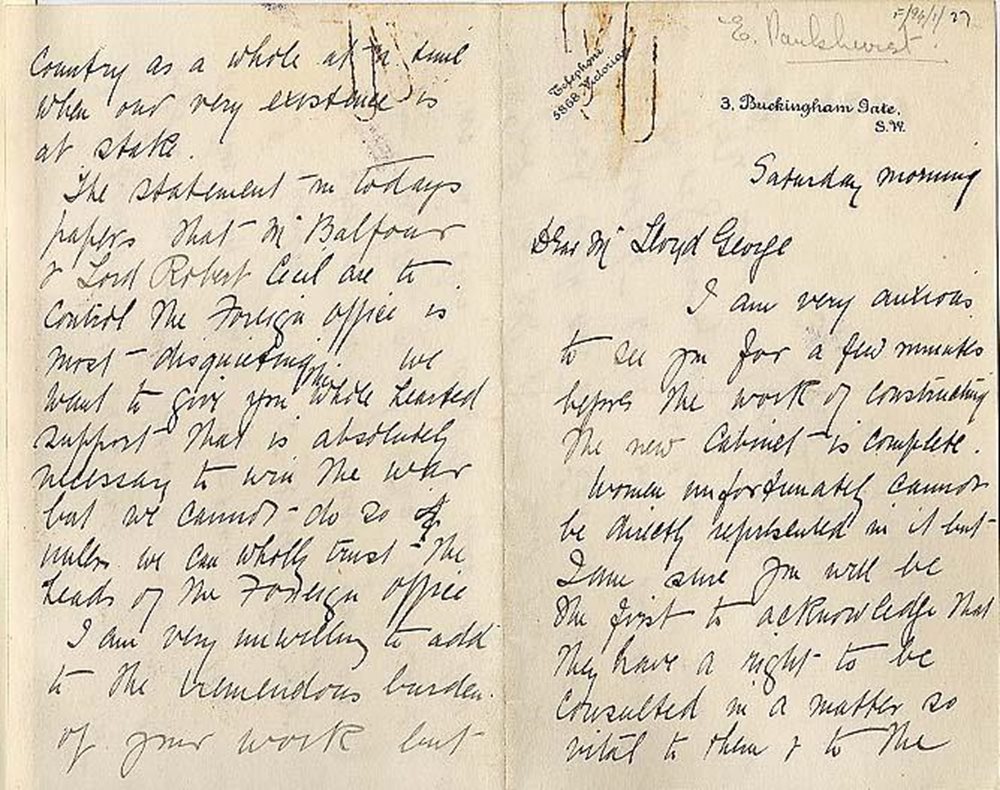 F/94/1/27
E. Pankhurst.
Telephone
5868 Victoria
3. Buckingham Gate,
S.W.
Saturday morning
Dear Mr Lloyd George
I am very anxious
to see you for a few minutes
before the work of constructing
the new Cabinet is complete.
Women unfortunately cannot
be directly represented in it but
I am sure you will be
the first to acknowledge that
they have a right to be
consulted in a matter so
vital to them & to the
Country as a whole at a time
when our very existence is
at stake.
The statement in todays
papers that Mr Balfour
& Lord Robert Cecil are to
control the Foreign office is
most disquieting. We
want to give you the whole hearted
support that is absolutely
necessary to win the war
but we cannot do so
unless we can wholly trust the
heads of the Foreign office
I am very unwilling to add
to the tremendous burden
of your work but